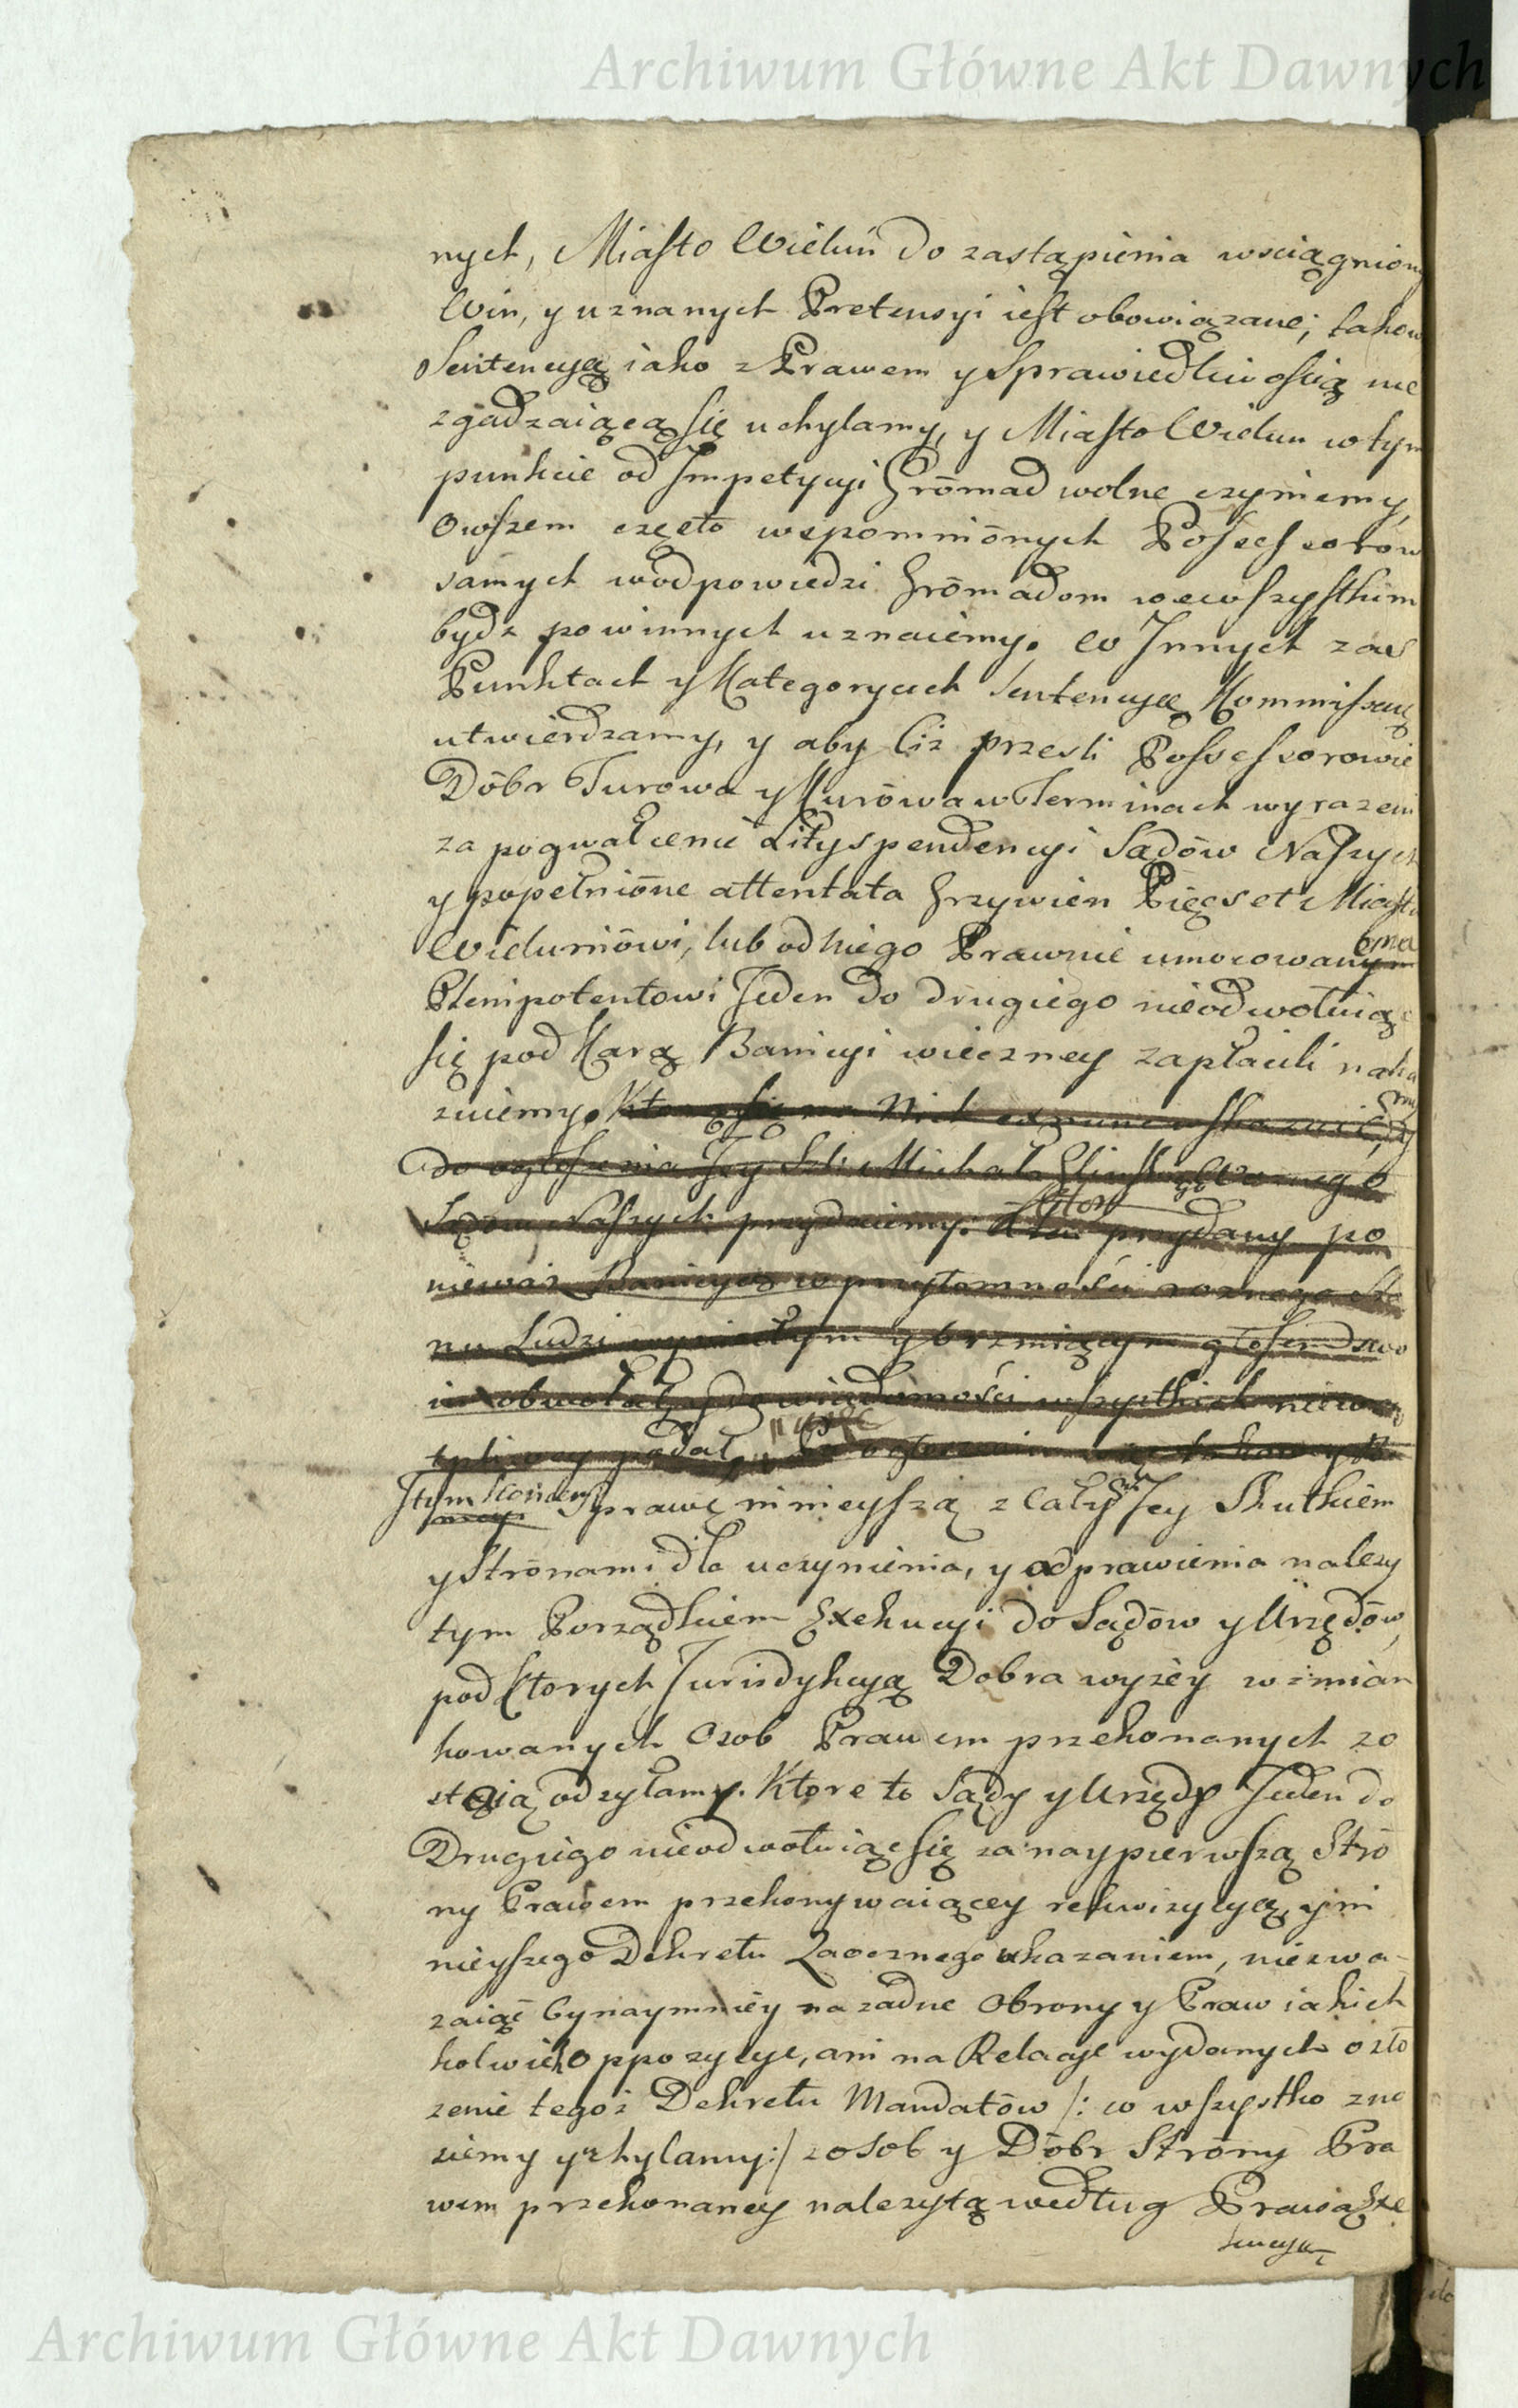 Archiwum Główne Akt Dawnych
nych, Miasto Wieluń do zastąpienia wsciągniony
Win, y uznanych Pretensyi iest obowiązane; takow
Sentencyą iako z Prawem y Sprawiedliwoscią nie
zgadzaiącą się uchylamy, y Miasto Wielun w tym
punkcie od Impetycyi Grōmad wolne czyniemy,
Owszem częeto wspomniōnych Possessorōw
samych wodpowiedzi Grōmadom wewszystkim
bydz powinnych uznaiemy. W Innych zas
Punktach y Kategoryach Sentencyą Kommissaią
utwierdzamy, y aby ciz przesli Possessorowie
Dōbr Turowa y Kurōwa w Terminach wyrazeni
za pogwałcenie Lityspendencyi Sadōw Naszych
y popełniōne attentata Grzywien Pięcset Miastu
Wieluniōwi, lub od niego Prawnie umocowanym
Plenipotentowi Jeden do drugiego nieodwołuiąc
się pod Karą Banicyi wieczney zapłacili naka
zuiemy. Ktorą się na Nich
do ogłoszenia Jey Szl: Michała Woznego
Sądow Naszych przydaiemy. Ktory przydany po
niewaz Banicyą w przytomności roznego Sta
nu Ludzi wyniosłym y brzmiącym głosem
obwołał, y do wiadomości wszystkich niewą
tpliwey podał,
Sprawę ninieyszą z całym Jey Skutkiem
y Strōnami dla uczynienia, y odprawienia nalezy
tym Porządkiem Exekucyi do Sądōw y Urzędōw,
pod ktorych Jurisdykcyą Dobra wyzēy wzmian
kowanych Osob Prawem przekonanych zo
staią odsyłamy. Ktore to Sądy y Urzędy Jeden do
Drugiego nieodwołuiąc się za naypierwszą Strō
ny Prawem przekonywaiącey rekwizycyą, y ni
nieyszego Dekretu Zaocznego ukazaniem, niezwa-
zaiąc bynaymniēy na zadne Obrony y Praw iakich
kolwiek oppozycye, ani na Relacye wydanych o zło
zenie tegoz Dekretu Mandatōw /: co wszystko zno
siemy y uchylamy:/ z osob y Dōbr Strōny Pra
wem przekonaney nalezytą według Prawa Exe
kucyą
Archiwum Główne Akt Dawnych